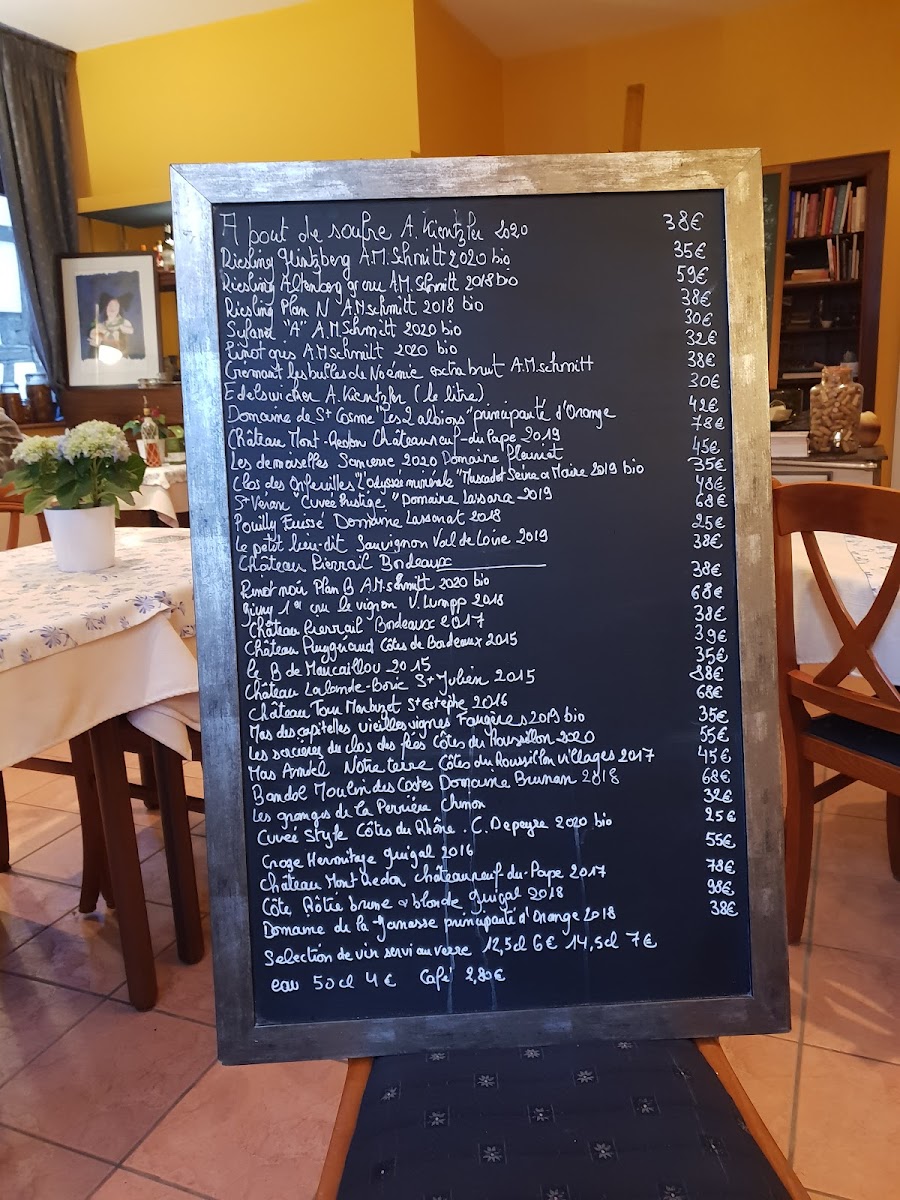 A bout de soufre A. Kientzler 2020 38€
Riesling Glintzberg A.M. Schmitt 2020 bio 35€
Riesling Altenberg gr cru A.M. Schmitt 2018 bio 59€
Riesling Plan N A.M schmitt 2018 bio 38€
Sylaner "A" A.M Schmitt 2020 bio 30€
Pinot gris A.M schmitt 2020 bio 32€
Cremant les bulles de Noémie extra brut A.M. schmitt 38€
Edelswicker A. Kientzler (le litre) 30€
Domaine de St Cosme "Les 2 albions" principauté d'Orange 42€
Château Mont-Redon Châteauneuf-du Pape 2019 78€
Les demoiselles Sancerre 2020 Domaine 45€
Clos des Orfeuilles "L'odyssée minérale" Muscadet Seine et Maine 2019 bio 35€
St Véran "Cuvée Prestige" Domaine Lassara 2019 48€
Pouilly Fuissé Domaine Lassarat 2018 68€
Le petit lieu-dit Sauvignon Val de Loire 2019 25€
Château Pierrail Bordeaux 38€
Pinot noir Plan B A.M. schmitt 2020 bio 38€
Givry 1er cru le vignon V. Lumpp 2018 68€
Château Pierrail Bordeaux 2017 38€
Château Puygueraud Côtes de Bordeaux 2015 39€
Le B de Maucaillou 2015 35€
Château Lalande-Borie St Julien 2015 38€
Château Tour Marbuzet St Estèphe 2016 68€
Mas des capitelles vieilles vignes Faugères 2019 bio 35€
Les sorcières du clos des fées Côtes du Roussillon 2020 55€
Mas Amiel Notre terre Côtes du Roussillon villages 2017 45€
Bandol Moulin des Costes Domaine Bunan 2018 68€
Les granges de la Perrière Chinon 32€
Cuvée Style Côtes du Rhône. C. Depeyre 2020 bio 25€
Croze Hermitage guigal 2016 55€
Château Mont Redon châteauneuf-du-Pape 2017 78€
Côte Rôtie brune & blonde guigal 2018 98€
Domaine de la Janasse principauté d'Orange 2018 38€
Selection de vin servi au verre 12,5cl 6€ 14,5cl 7€
eau 50cl 4€ Café 2,80€